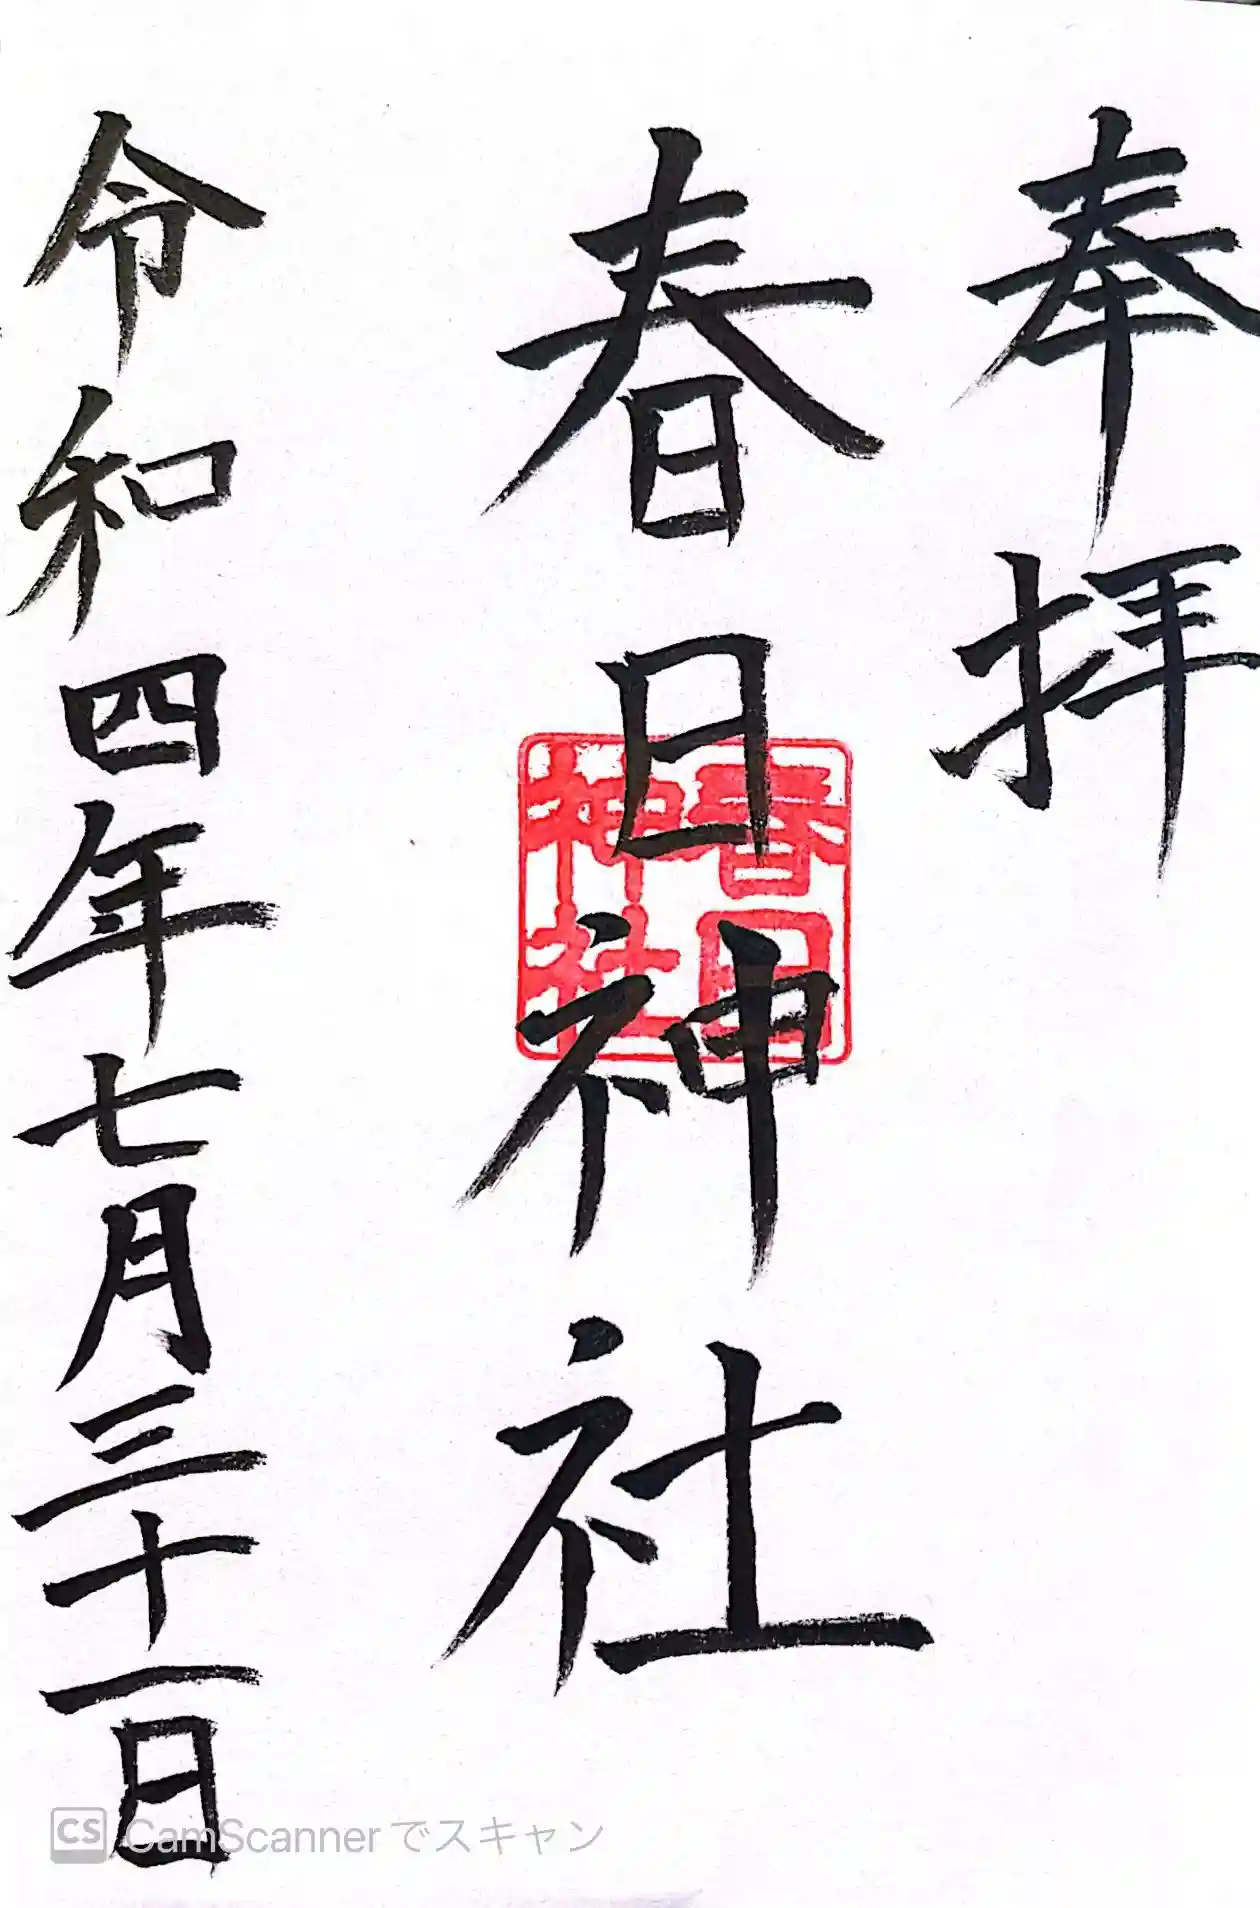 奉拝
春日神社
春日
神社
令和四年七月三十一日
CS CamScanner でスキャン